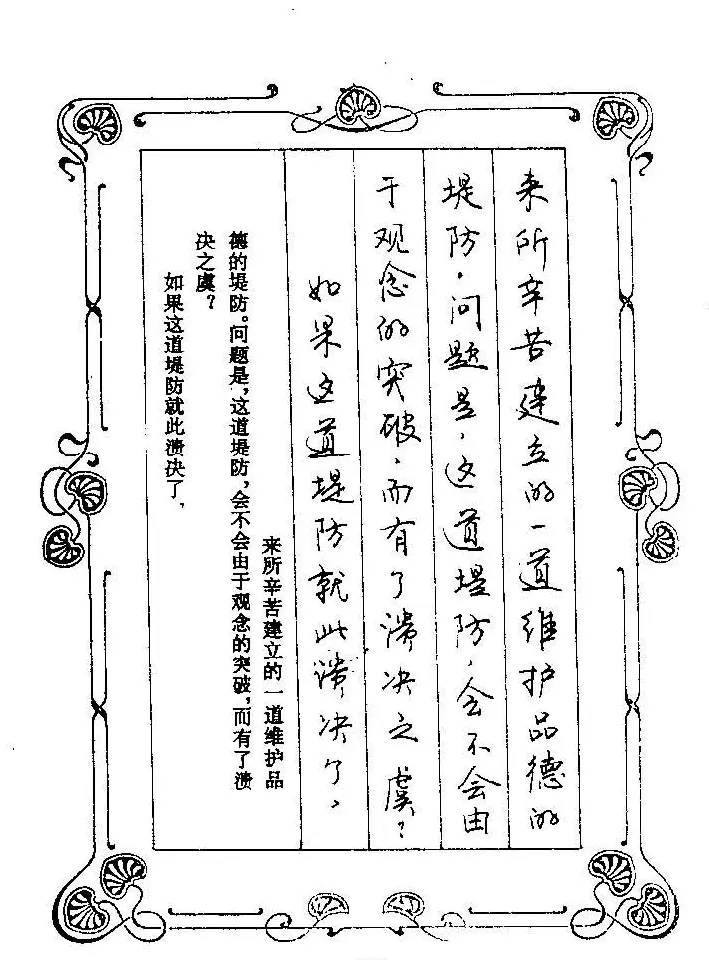 来所辛苦建立的一道维护品德的
堤防。问题是,这道堤防,会不会由
于观念的突破,而有了溃决之虞?
如果这道堤防就此溃决了,
来所辛苦建立的一道维护品
德的堤防。问题是,这道堤防,会不会由于观念的突破,而有了溃
决之虞?
如果这道堤防就此溃决了,